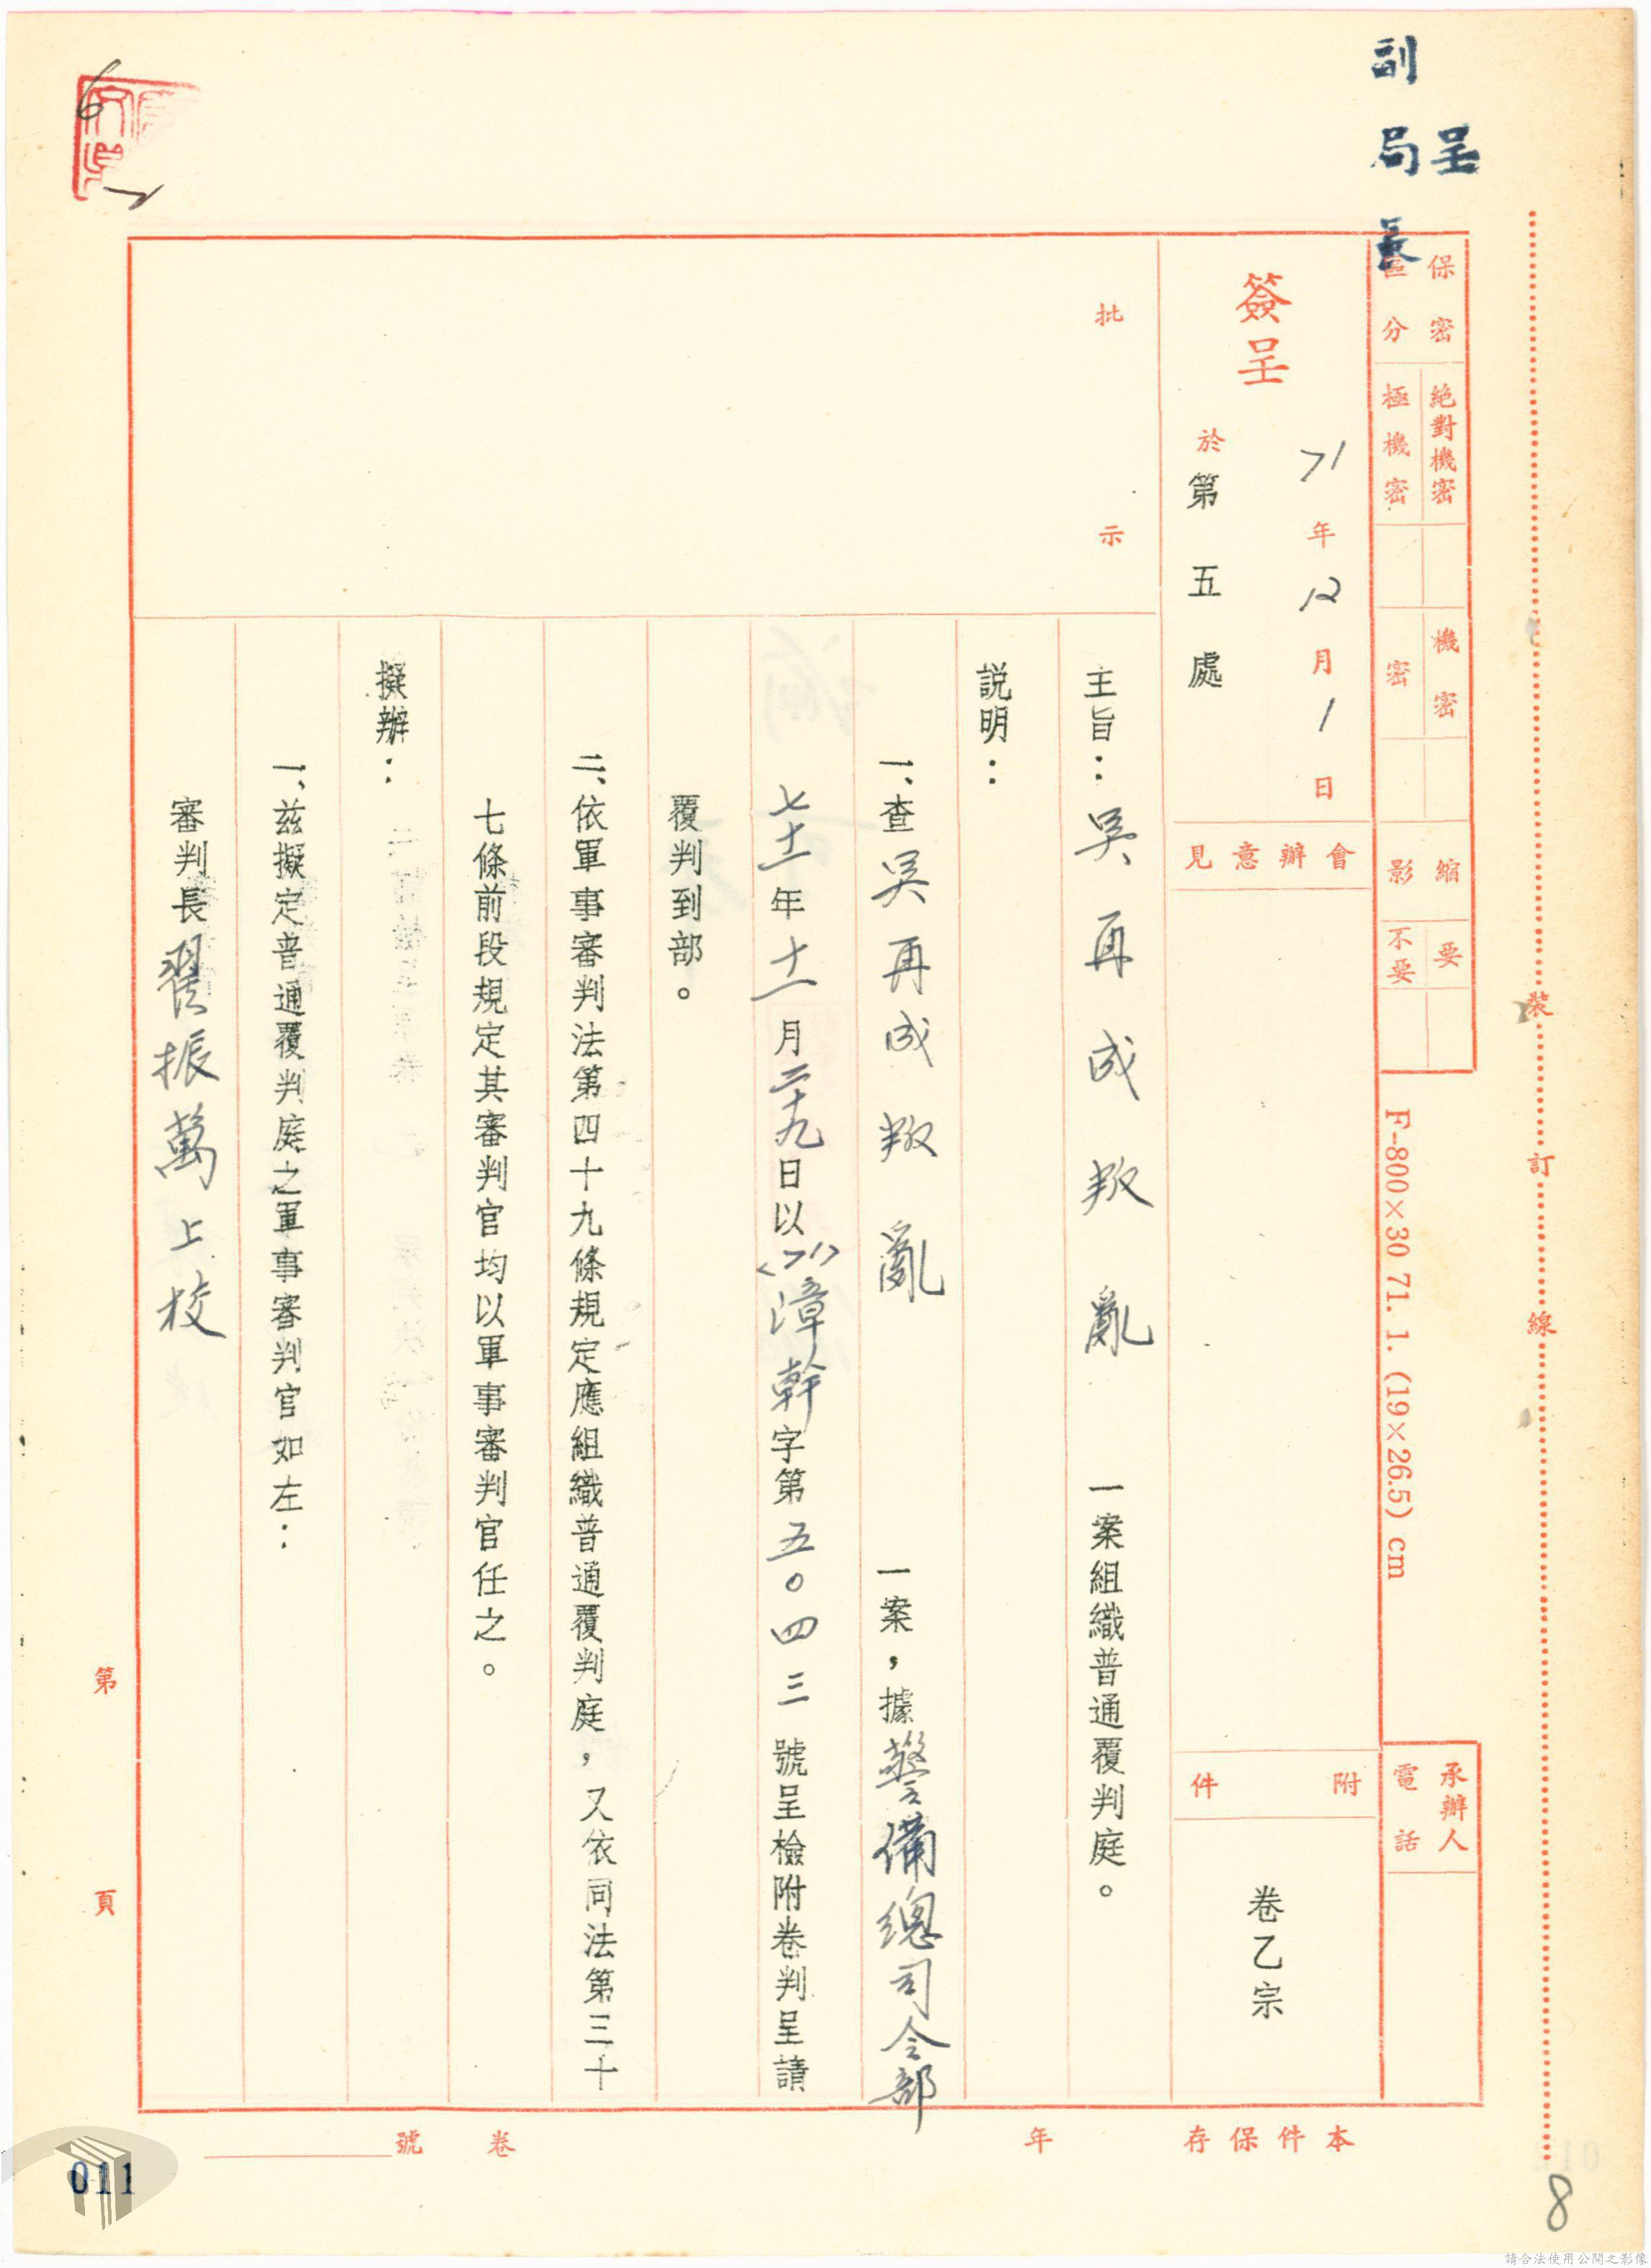 呈
副局長
保密區分
絕對機密
極機密
機密
密
縮影
要
不要
F-800×30 71. 1. (19×26.5) cm
承辦人
電話
裝訂線
簽呈
71年12月1日
於第五處
會辦意見
附件
卷乙宗
批示
主旨：吳再成叛亂一案組織普通覆判庭。
說明：
一、查吳再成叛亂一案，據警備總司令部
七十一年十一月二十九日以<71>漳幹字第五〇四三號呈檢附卷判呈請
覆判到部。
二、依軍事審判法第四十九條規定應組織普通覆判庭，又依同法第三十
七條前段規定其審判官均以軍事審判官任之。
擬辦：
一、茲擬定普通覆判庭之軍事審判官如左：
審判長翟振萬上校
第頁
本件保存年
卷號
011
8
請合法使用公開之影像